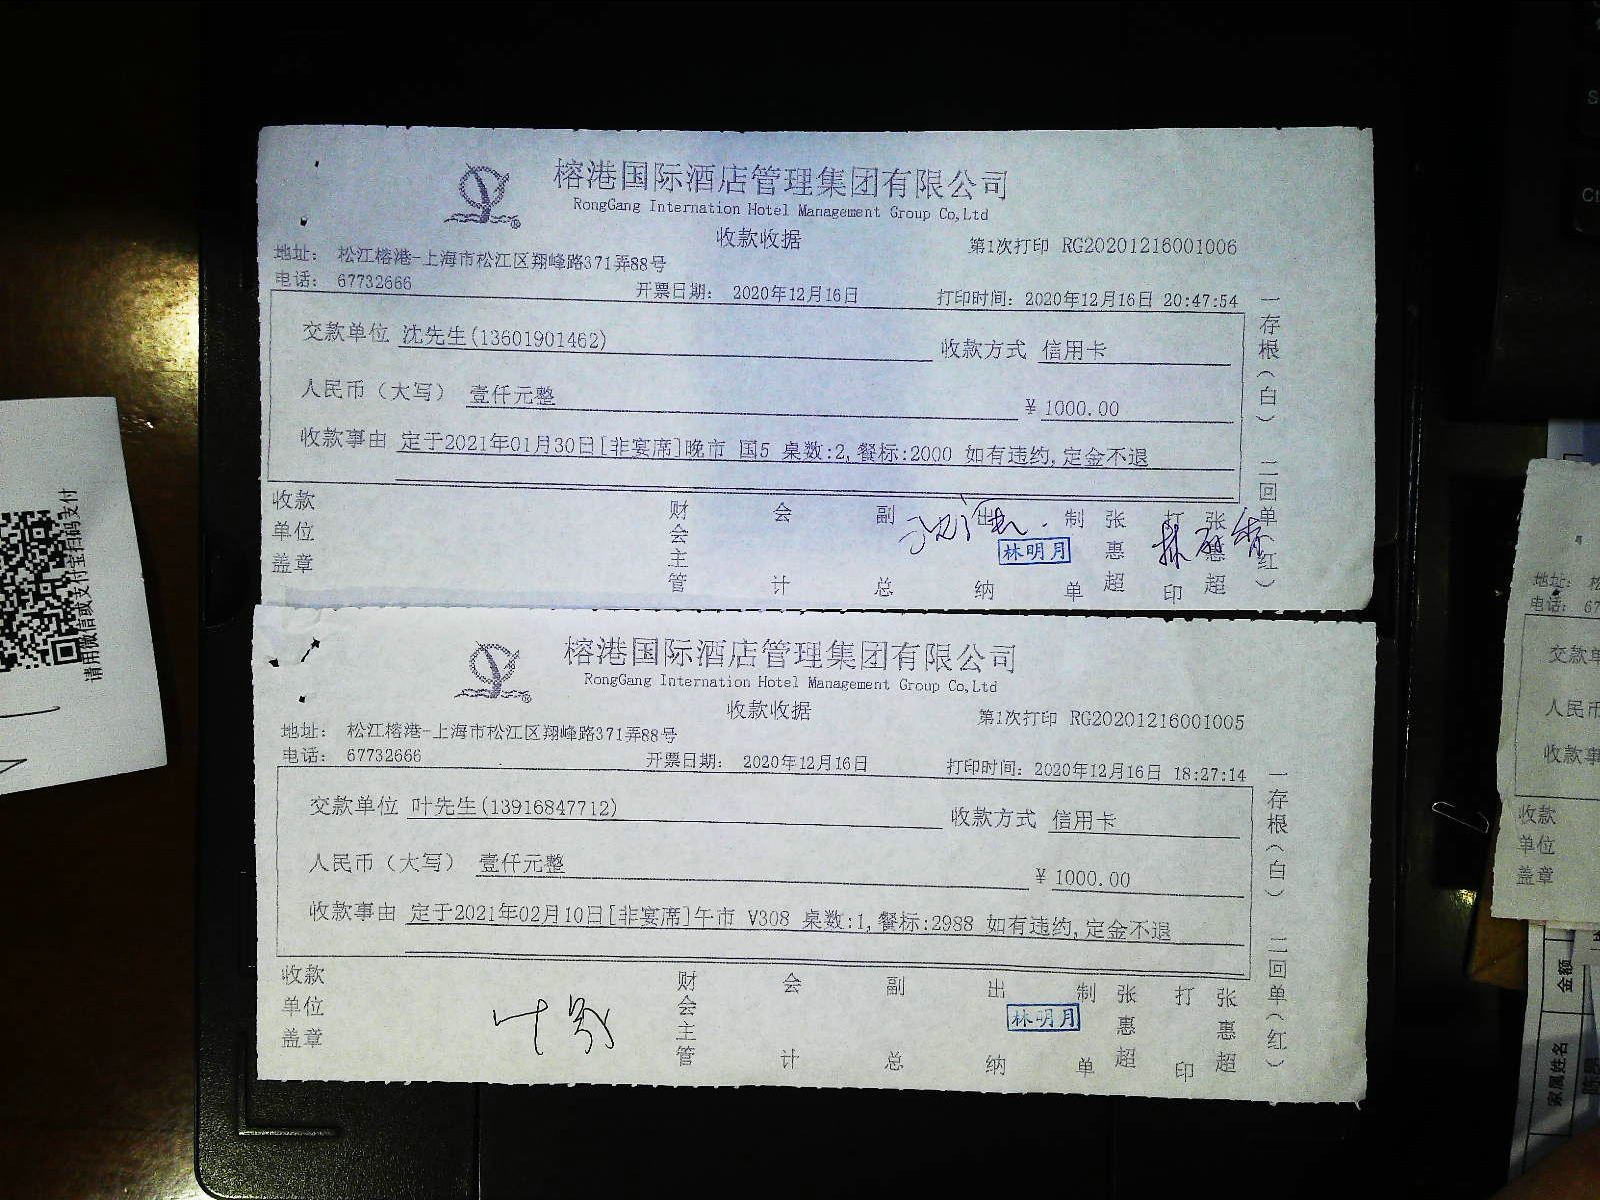 榕港国际酒店管理集团有限公司
RongGang Internation Hotel Management Group Co,Ltd
收款收据
第1次打印 RG20201216001006
地址： 松江榕港-上海市松江区翔峰路371弄88号
电话： 67732666
开票日期： 2020年12月16日
打印时间：2020年12月16日 20:47:54
交款单位 沈先生(13601901462)
收款方式 信用卡
人民币（大写） 壹仟元整
¥ 1000.00
收款事由 定于2021年01月30日[非宴席]晚市 国5 桌数:2,餐标:2000 如有违约,定金不退
收款单位盖章
财会主管
会计
副总
出纳
林明月
制单
张惠超
打印
张惠超
一存根（白）
二回单（红）
榕港国际酒店管理集团有限公司
RongGang Internation Hotel Management Group Co,Ltd
收款收据
第1次打印 RG20201216001005
地址： 松江榕港-上海市松江区翔峰路371弄88号
电话： 67732666
开票日期： 2020年12月16日
打印时间：2020年12月16日 18:27:14
交款单位 叶先生(13916847712)
收款方式 信用卡
人民币（大写） 壹仟元整
¥ 1000.00
收款事由 定于2021年02月10日[非宴席]午市 V308 桌数:1,餐标:2988 如有违约,定金不退
收款单位盖章
财会主管
会计
副总
出纳
林明月
制单
张惠超
打印
张惠超
一存根（白）
二回单（红）
请用微信或支付宝扫码支付
地址： 松
电话： 67
交款单
人民币
收款事
收款
单位
盖章
金额
家属姓名